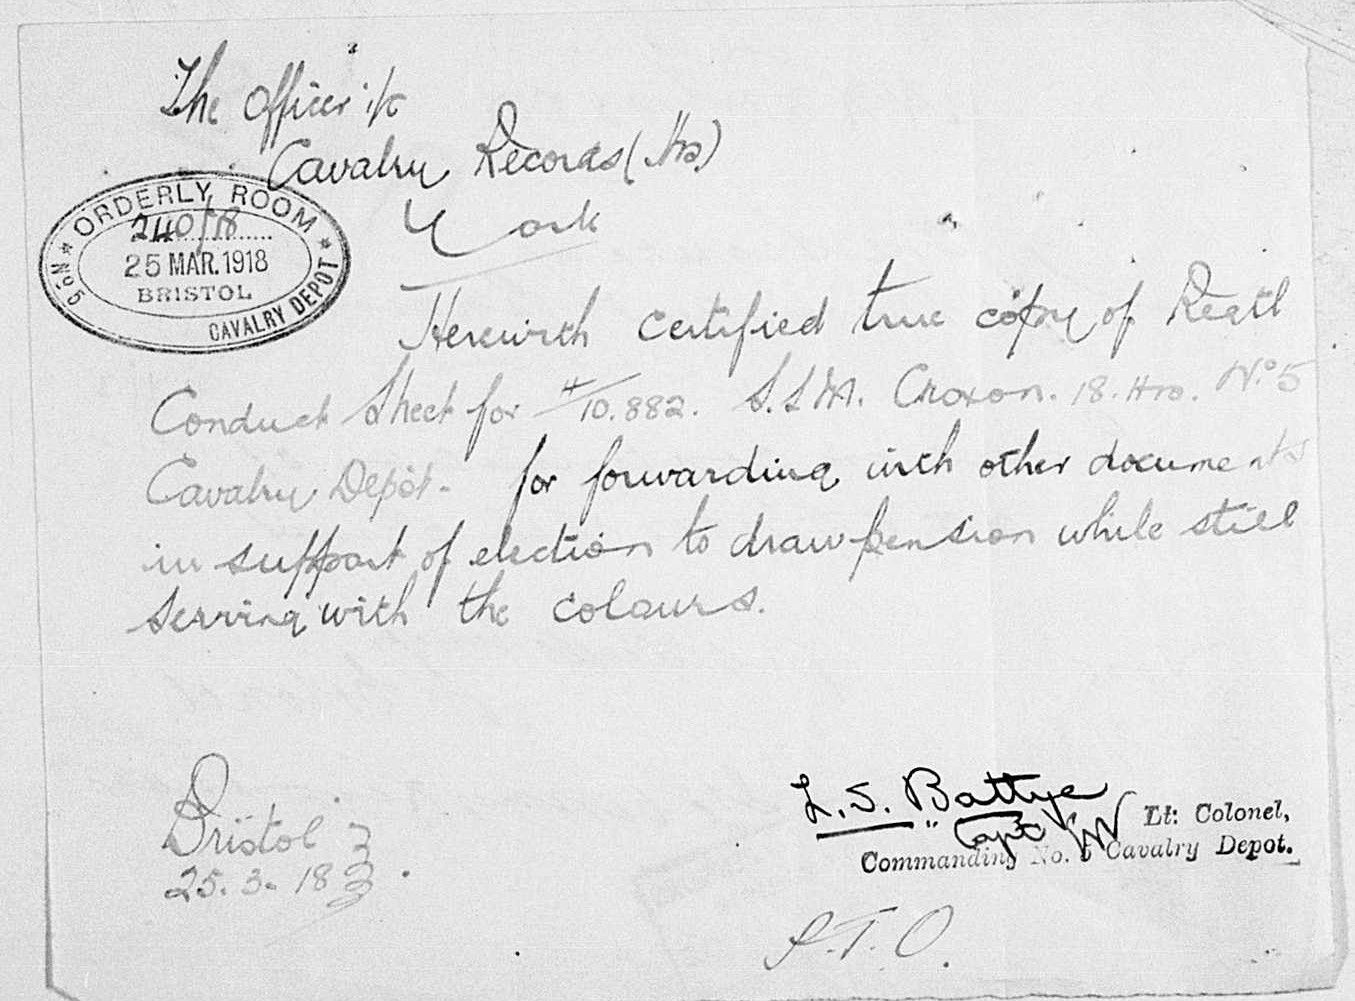 The Officer i/c
Cavalry Records (Hrs)
York
ORDERLY ROOM
240/18
25 MAR. 1918
BRISTOL
No 5 CAVALRY DEPOT
Herewith certified true copy of Regtl
Conduct Sheet for H/10.882. S.S.M. Croxon. 18. Hrs. No. 5
Cavalry Depôt. for forwarding with other documents
in support of election to draw pension while still
serving with the colours.
Bristol
25. 3. 18
L. S. Battye
" Capt for Lt: Colonel,
Commanding No. 5 Cavalry Depot.
P.T.O.